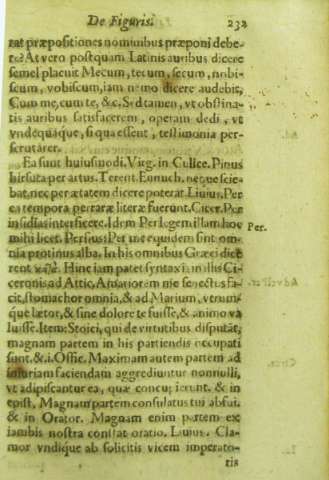 De Figuris. 232
rat præpositiones nominibus præponi debe-
re? At vero postquam Latinis auribus dicere
semel placuit Mecum, tecum, secum, nobi-
scum, vobiscum, iam nemo dicere audebit,
Cum me, cum te, &c. Sed tamen, vt obstina-
tis auribus satisfacerem, operam dedi, vt
vndequaque, si qua essent, testimonia per-
scrutarer.
Ea sunt huiusmodi. Virg. in Culice. Pinus
hirsuta per artus. Terent. Eunuch. neque scie-
bat, nec per ætatem dicere poterat. Liuius. Per
ea tempora perraræ literæ fuerunt. Cicer. Per
insidias interficere. Idem Per legem illam
mihi licet. Persius: Per me equidem sint om-
nia protinus alba. In his omnibus Græci dice
rent Hinc iam patet syntaxis in illis Ci-
ceronis ad Attic. Amariorem me senectus fa-
cit, stomachor omnia, & ad Marium, vtrum-
que lætor, & sine dolore te fuisse, & animo va
luisse. Item: Stoici, qui de virtutibus disputāt,
magnam partem in his partiendis occupati
sunt. & .1. Offic. Maximam autem partem ad
iniuriam faciendam aggrediuntur nonnulli,
vt adipiscantur ea, quæ concupierunt. & in
epist. Magnam partem consulatus tui absui.
& in Orator. Magnam enim partem ex
iambis nostra constat oratio. Liuius. Cla-
mor vndique ab solicitis vicem imperato-
ris
Per.